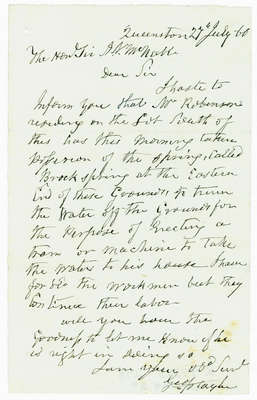 Queenston 27th July 60
The Honl Sir A. N. McNabb
Dear Sir
I haste to
Inform you that Mr Robinson
residing on the Lot South of
this has this Morning taken
Possession of the Spring, called
Brock spring at the Eastern
End of these Grounds to turn
the Water off the Grounds for
the Purpose of Erecting a
tram or machine to take
the Water to his house I have
for the workmen but they
Continue their labor
will you have the
Goodness to let me Know if he
is right in doing so
I am your Obd Servt
Geo Playter